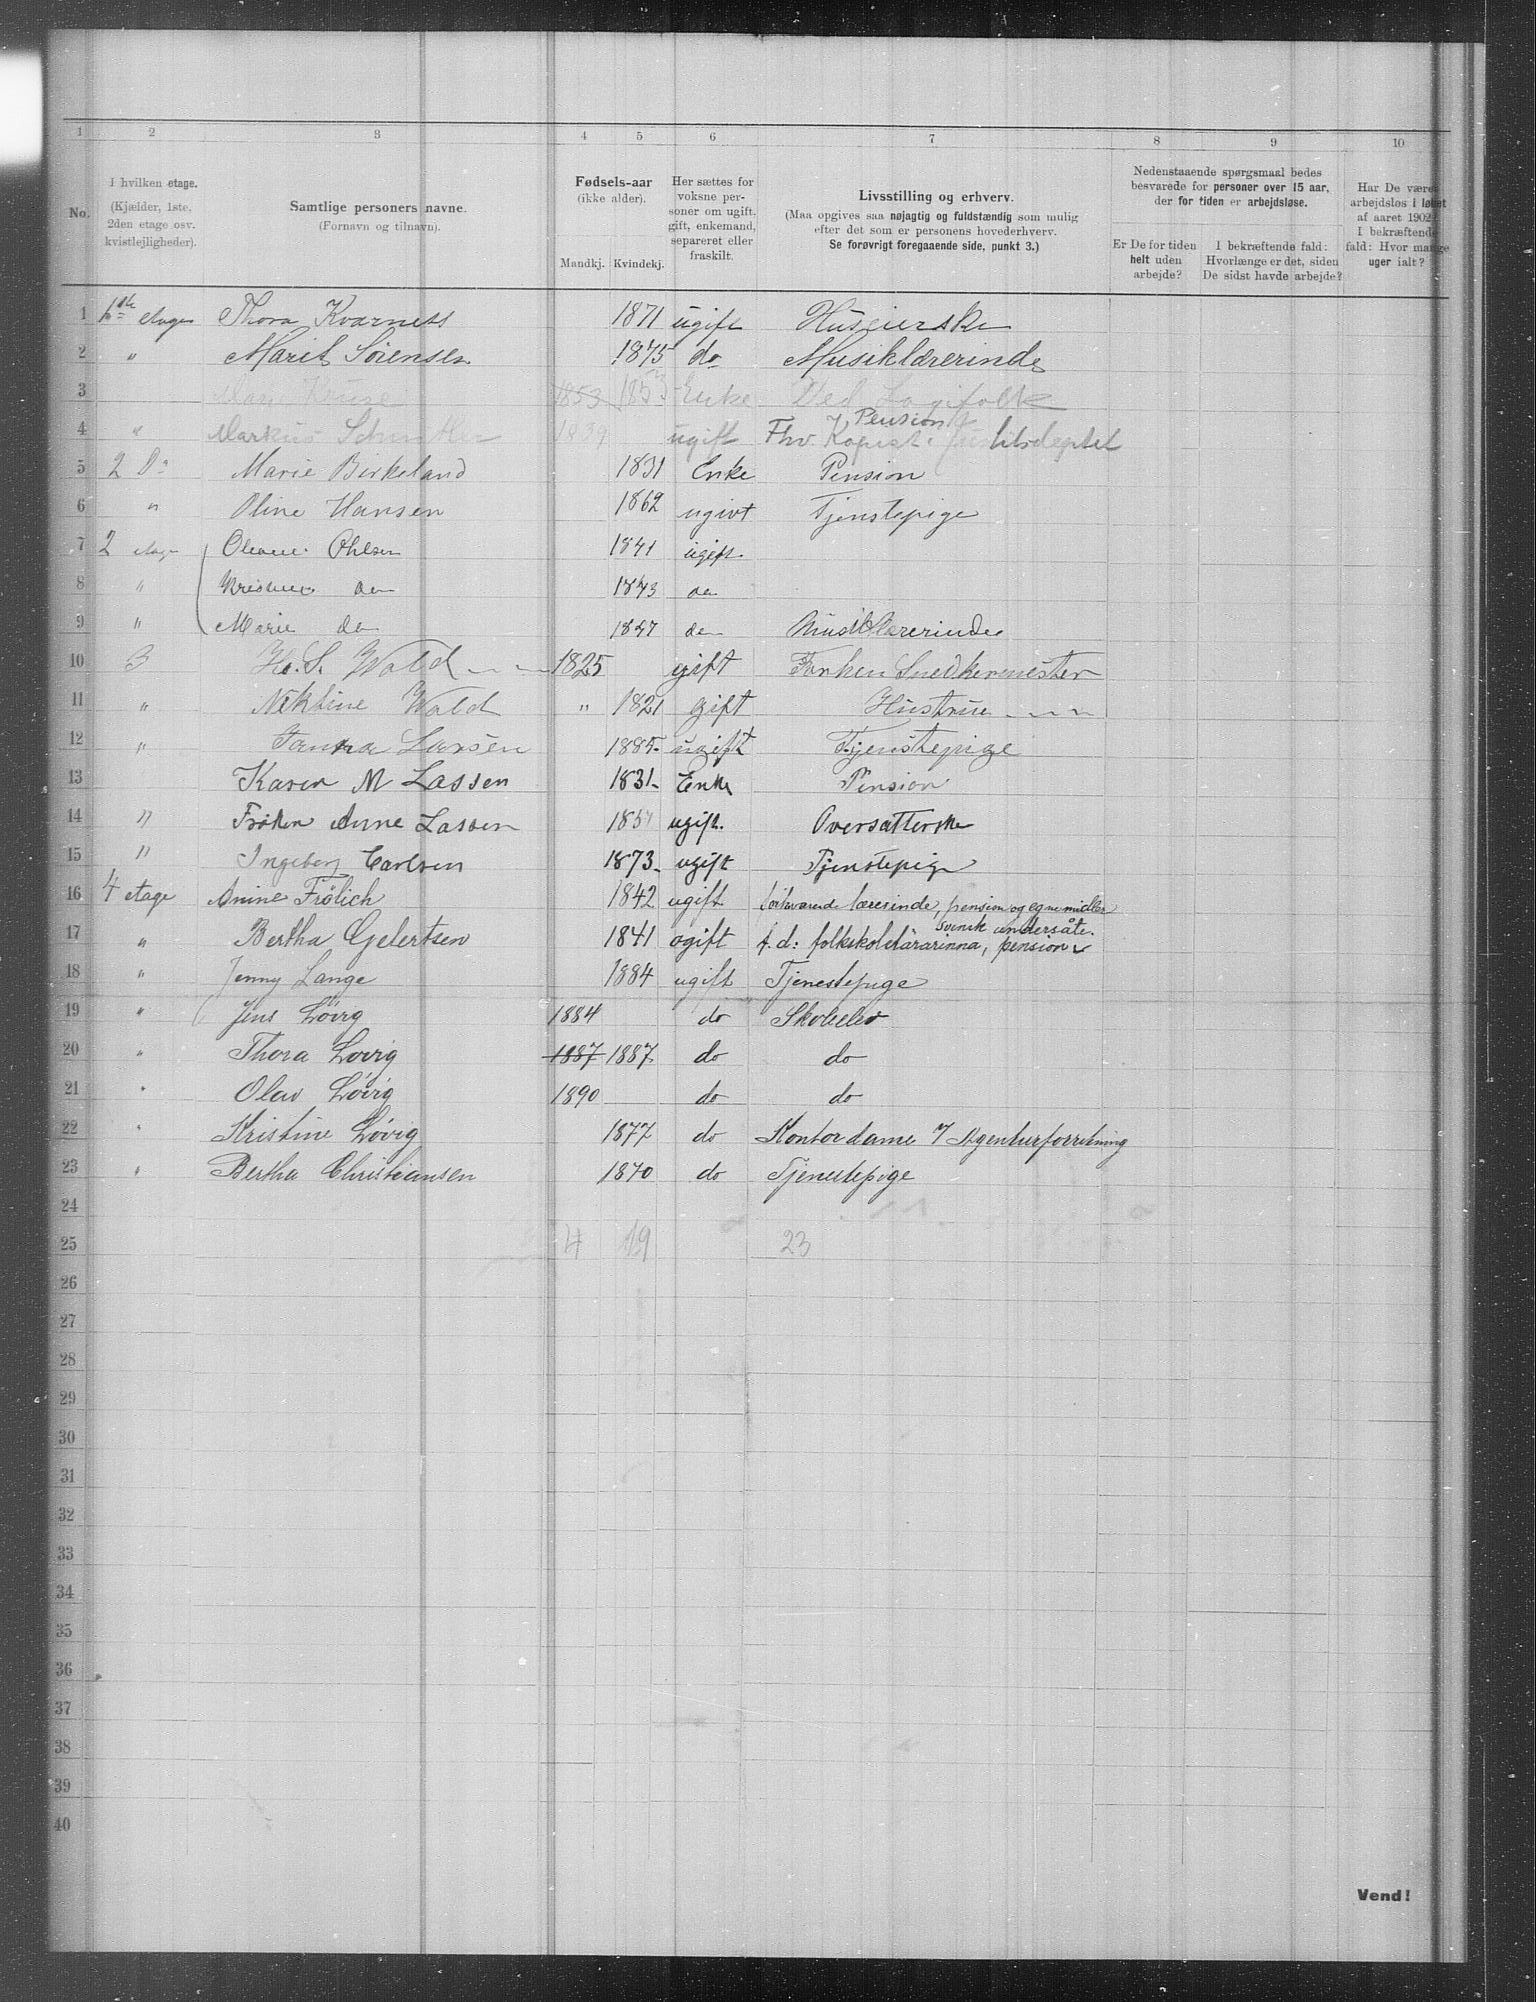 1 2 3 4 5 6 7 8 9 10
No.
I hvilken etage.
(Kjælder, 1ste.
2den etage osv.
kvistlejligheder).
Samtlige personers navne.
(Fornavn og tilnavn).
Fødsels-aar
(ikke alder).
Mandkj. Kvindekj.
Her sættes for
voksne per-
soner om ugift,
gift, enkemand,
separeret eller
fraskilt.
Livsstilling og erhverv.
(Maa opgives saa nøjagtig og fuldstændig som mulig
efter det som er personens hovederhverv.
Se forøvrigt foregaaende side, punkt 3.)
Nedenstaaende spørgsmaal bedes
besvarede for personer over 15 aar,
der for tiden er arbejdsløse.
Er De for tiden
helt uden
arbejde?
I bekræftende fald:
Hvorlænge er det, siden
De sidst havde arbejde?
Har De været
arbejdsløs i løbet
af aaret 1902?
I bekræftende
fald: Hvor mange
uger ialt?
1 1ste etage Thora Kvarness 1871 ugift Huseierske
2 " Marit Sörensen 1875 do Musiklærerinde
3 Kruse 1853 1853 Enke Ved Logifolk
Pension
4 " Markus 1839 ugift Fhv. Kopist i Justitsdeptet
5 2 Do Marie Birkeland 1831 Enke Pension
6 " Oline Hansen 1862 ugivt Tjenstepige
7 2 etage Ohlsen 1841 ugift.
8 " do 1843 do
9 " Marie do 1847 do Musiklærerinde
10 3 H. S. Wold 1825 gift Snedkermester
11 " Nektine Wold " 1821 gift Hustrue
12 " Larsen 1885 ugift Tjenstepige
13 Karen M Lassen 1831 Enke Pension
14 " Frøken Anne Lassen ugift. Oversætterske
15 " Ingeborg Carlsen 1873 ugift Tjenstepige
16 4 etage Anine Frölich 1842 ugift forhværende lærerinde, pension og egne midler
svensk undersåte.
17 " Bertha Gelertsen 1841 ogift f. d. folkskolelärarinna, pension
18 " Jenny Lange 1884 ugift Tjenestepige
19 " Jens Lövig 1884 do Skoleelev
20 " Thora Lövig 1887 1887 do do
21 " Olav Lövig 1890 do do
22 " Kristine Lövig 1877 do Kontordame i/ Agenturforretning
23 " Bertha Christiansen 1870 do Tjenestepige
24
25 4 19 23
26
27
28
29
30
31
32
33
34
35
36
37
38
39
40
Vend!